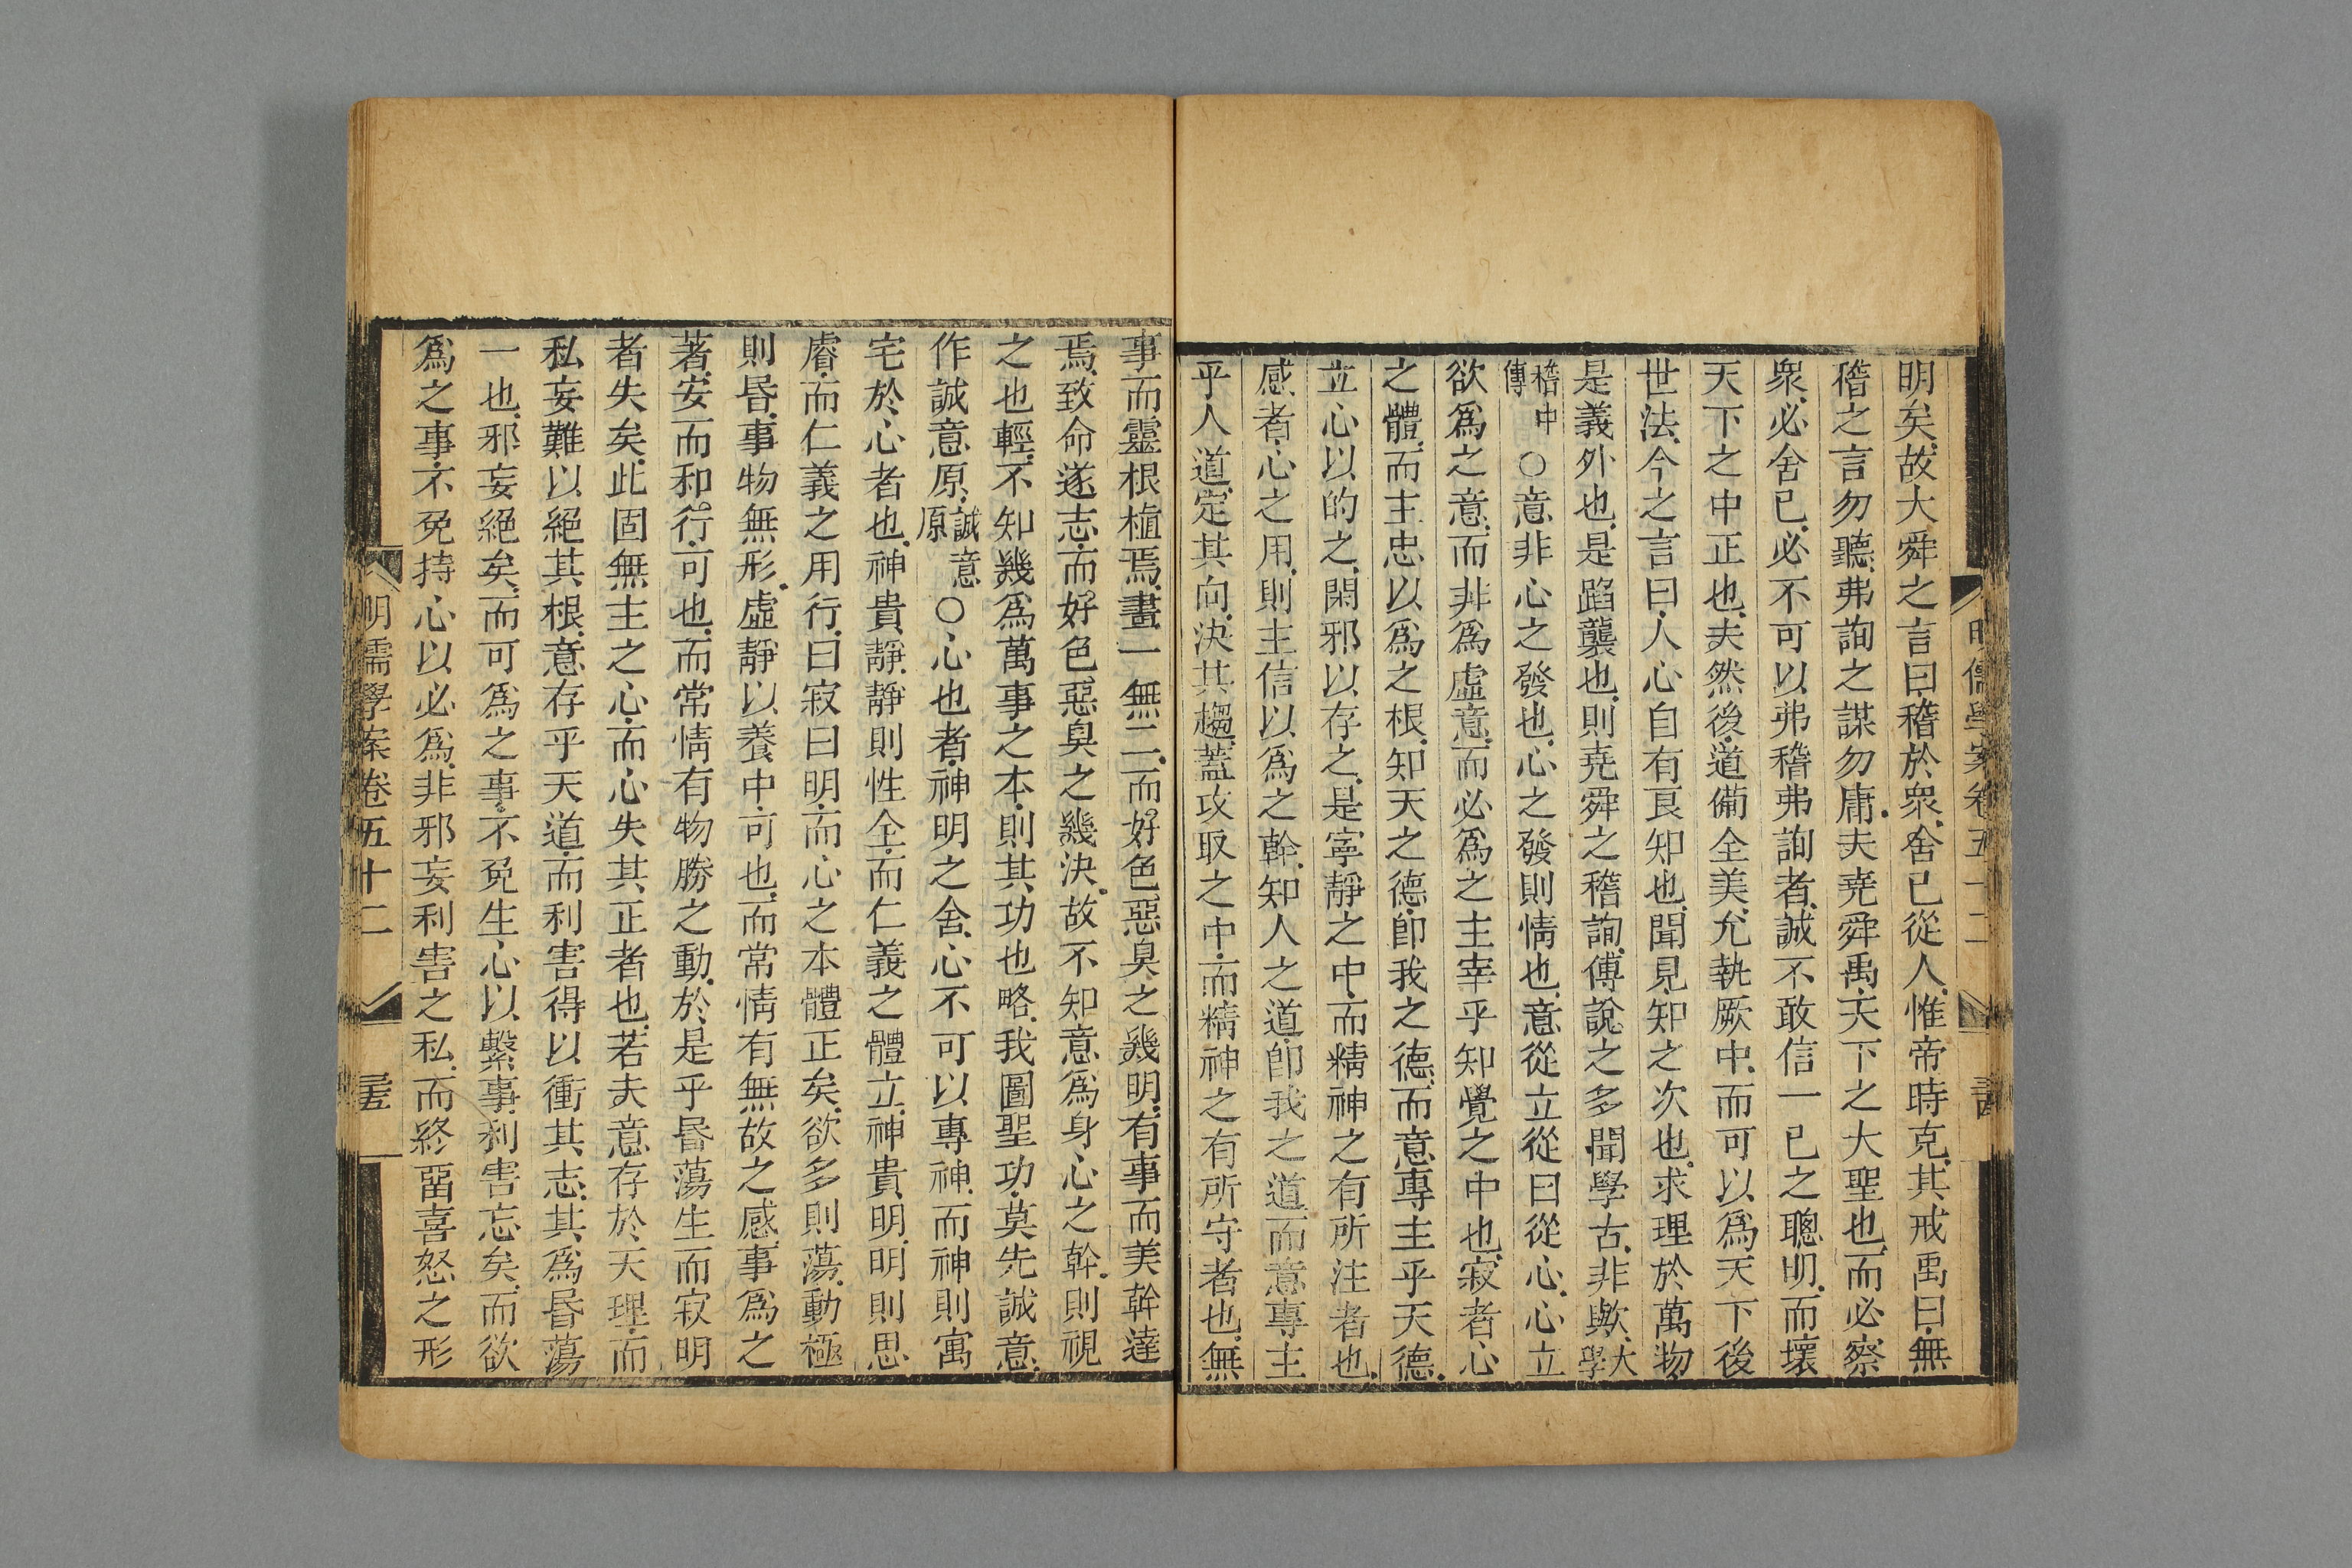 明儒學案卷五十二
明矣故大舜之言曰稽於衆舍已從人惟帝時克其戒禹曰無
稽之言勿聽弗詢之謀勿庸夫堯舜禹天下之大聖也而必察
衆必舍已必不可以弗稽弗詢者誠不敢信一已之聰明而壞
天下之中正也夫然後道備全美允執厥中而可以爲天下後
世法今之言曰人心自有良知也聞見知之次也求理於萬物
是義外也是蹈襲也則堯舜之稽詢傅說之多聞學古非歟大學
稽中傳〇意非心之發也心之發則情也意從立從曰從心心立
欲爲之意而非爲虛意而必爲之主宰乎知覺之中也寂者心
之體而主忠以爲之根知天之德卽我之德而意專主乎天德
立心以的之閑邪以存之是寧靜之中而精神之有所注者也
感者心之用則主信以爲之幹知人之道卽我之道而意專主
乎人道定其向決其趨蓋攻取之中而精神之有所守者也無
事而靈根植焉畫一無二而好色惡臭之幾明有事而美幹達
焉致命遂志而好色惡臭之幾決故不知意爲身心之幹則視
之也輕不知幾爲萬事之本則其功也略我圖聖功莫先誠意
作誠意原誠意原〇心也者神明之舍心不可以專神而神則寓
宅於心者也神貴靜靜則性全而仁義之體立神貴明明則思
睿而仁義之用行曰寂曰明而心之本體正矣欲多則蕩動極
則昬事物無形虛靜以養中可也而常情有無故之感事爲之
著安而和行可也而常情有物勝之動於是乎昬蕩生而寂明
者失矣此固無主之心而心失其正者也若夫意存於天理而
私妄難以絕其根意存乎天道而利害得以衝其志其爲昬蕩
一也邪妄絕矣而可爲之事不免生心以繫事利害忘矣而欲
爲之事不免持心以必爲非邪妄利害之私而終畱喜怒之形
明儒學案卷五十二